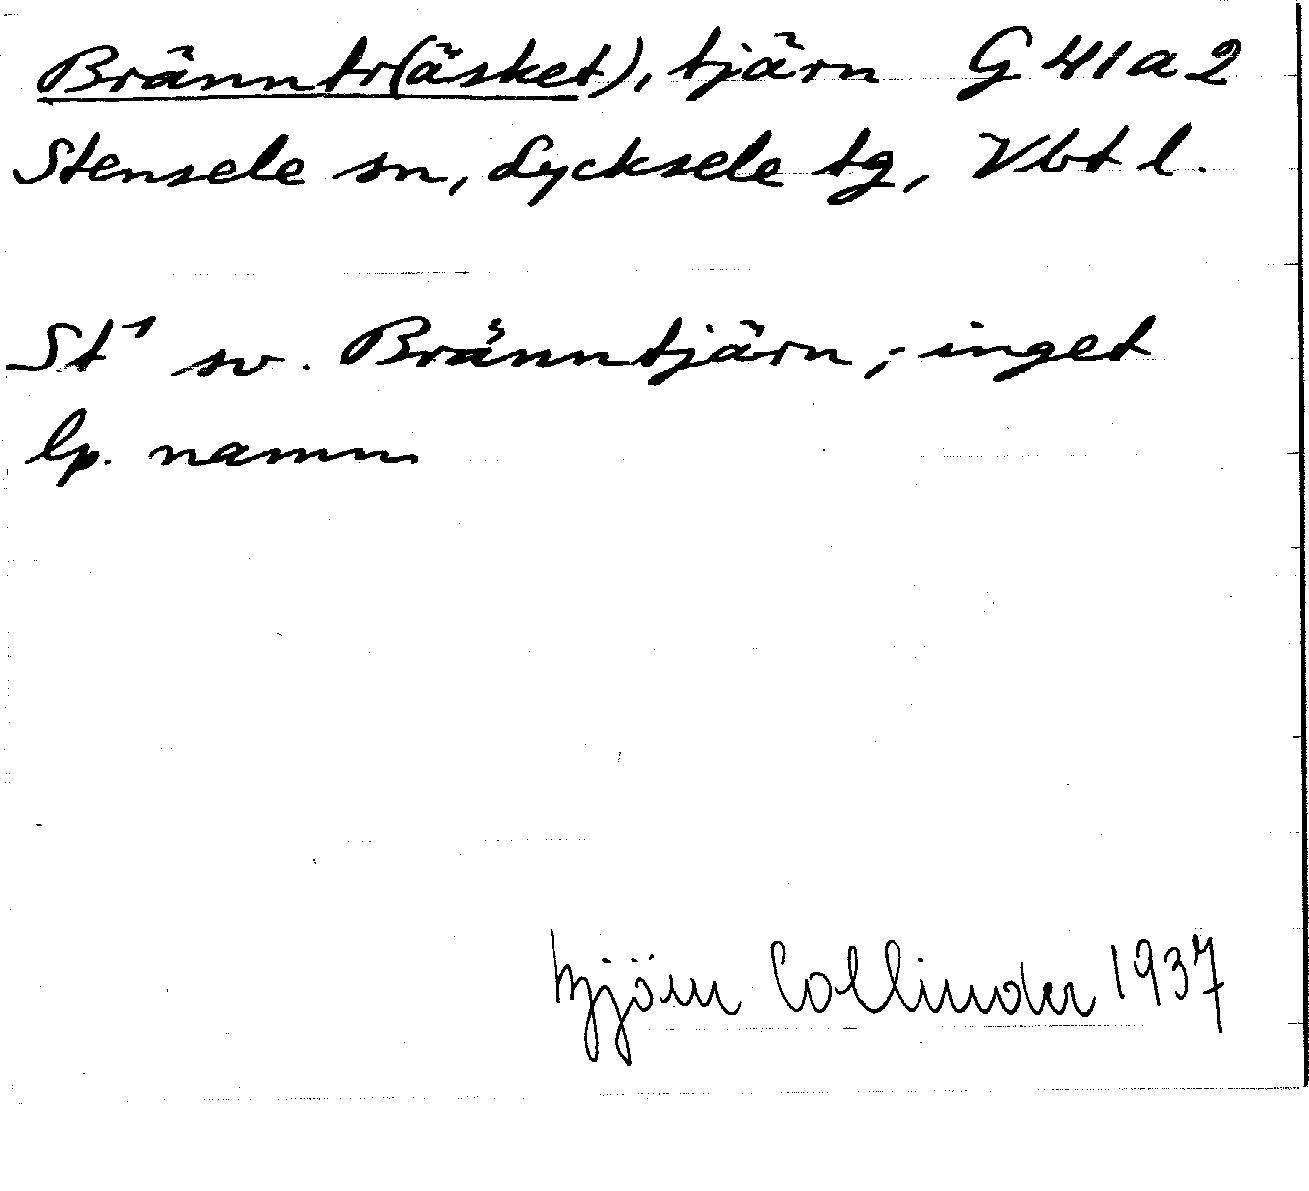 Bränntr(äsket), tjärn G 41 a 2
Stensele sn, Lycksele tg, Vbt l.
St¹ sv. Bränntjärn; - inget
lp. namn
Björn Collinder 1937